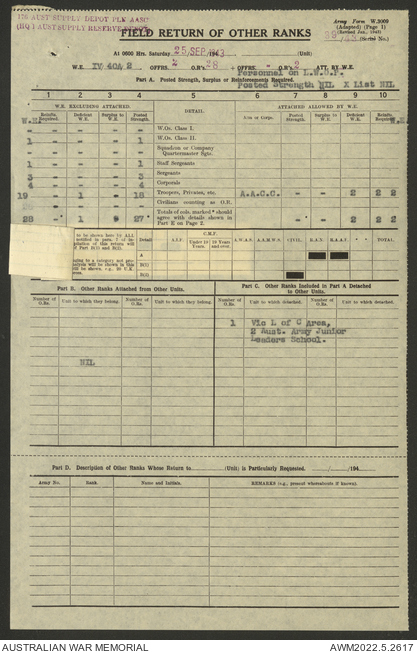 176 AUST SUPPLY DEPOT PLN AASC
(HQ) AUST SUPPLY RESERVE DEPOT
Army Form W.3009
(Adapted) (Page 1)
(Revised Jan., 1943)
(Serial No.)
FIELD RETURN OF OTHER RANKS
At 0600 Hrs. Saturday 25 SEP 1943 (Unit)
W.E. IV/40A/2 - 2 OFFRS. O.R's 28 + OFFRS. - O.R's 2 ATT. BY W.E.
Personnel on L.W.O.P.
Part A. Posted Strength, Surplus or Reinforcements Required.
Posted Strength NIL X List NIL
1 2 3 4 5 6 7 8 9 10
W.E. EXCLUDING ATTACHED. DETAIL. ATTACHED ALLOWED BY W.E.
Reinfts. Required. Deficient W.E. Surplus to W.E. Posted Strength. Arm or Corps. Posted Strength. Surplus to W.E. Deficient W.E. Reinfts. Required.
W.Os. Class I.
- - - 1 Squadron or Company Quartermaster Sgts. W.Os. Class II.
1 - - 1 Staff Sergeants
3 - - 3 Sergeants
4 - - 4 Corporals
19 1 - 18 Troopers, Privates, etc. A.A.C.C. - - 2 2 2
Civilians counting as O.R.
28 1 27 Totals of cols. marked * should agree with details shown in Part E on Page 2. 2 2 2
Detail A.I.F. C.M.F. A.W.A.S. A.A.M.W.S. CIVIL. R.A.N. R.A.A.F. TOTAL.
Under 19 Years. 19 Years and over.
A
B(i)
B(ii)
Part B. Other Ranks Attached from Other Units. Part C. Other Ranks Included in Part A Detached to Other Units.
Number of O.Rs. Unit to which they belong. Number of O.Rs. Unit to which they belong. Number of O.Rs. Unit to which detached. Number of O.Rs. Unit to which detached.
1 Vic L of C Area,
2 Aust. Army Junior
Leaders School.
NIL
Part D. Description of Other Ranks Whose Return to (Unit) is Particularly Requested. / /194
Army No. Rank. Name and Initials. REMARKS (e.g., present whereabouts if known).
AUSTRALIAN WAR MEMORIAL AWM2022.5.2617